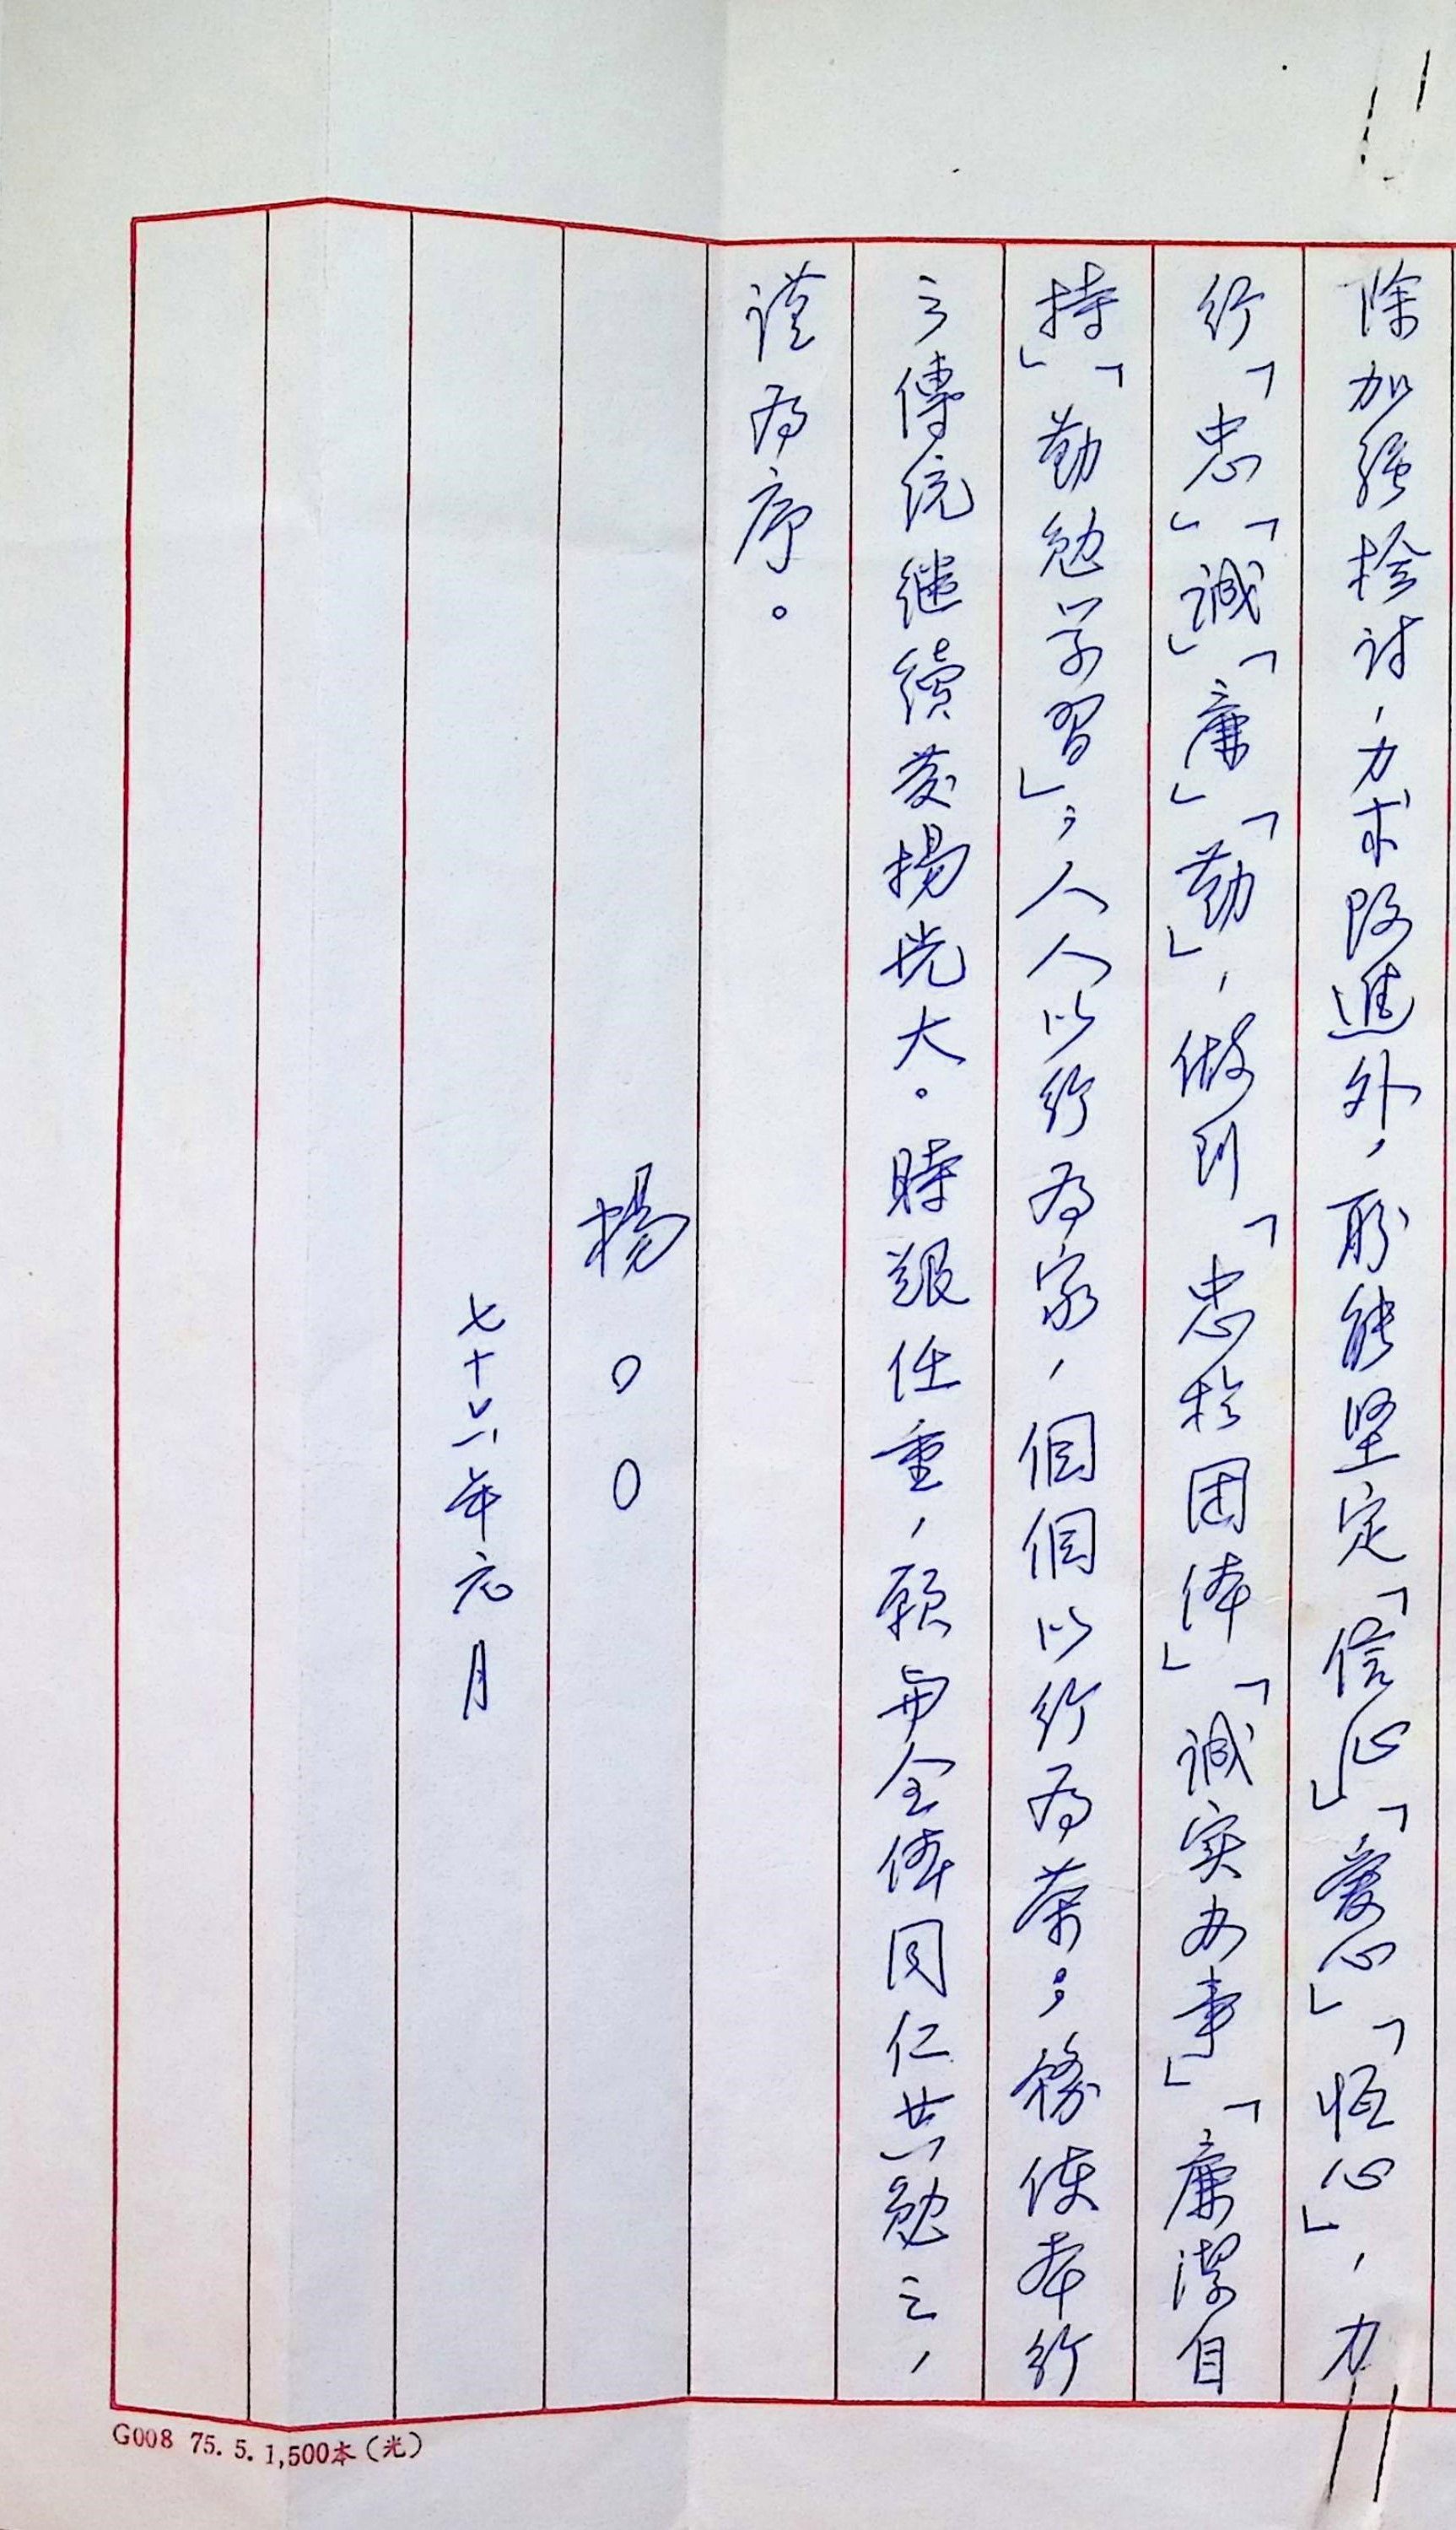 除加強檢討，力求改進外，所能坚定「信心」「愛心」「恒心」，力
行「忠」「誠」「廉」「勤」，做到「忠於团体」「誠实办事」「廉潔自
持」「勤勉学習」；人人以行为家，個個以行为荣；務使本行
之傳统继續发揚光大。時艱任重，願与全体同仁共勉之，
謹为序。
楊○○
七十六年元月
G008 75. 5. 1,500本（光）